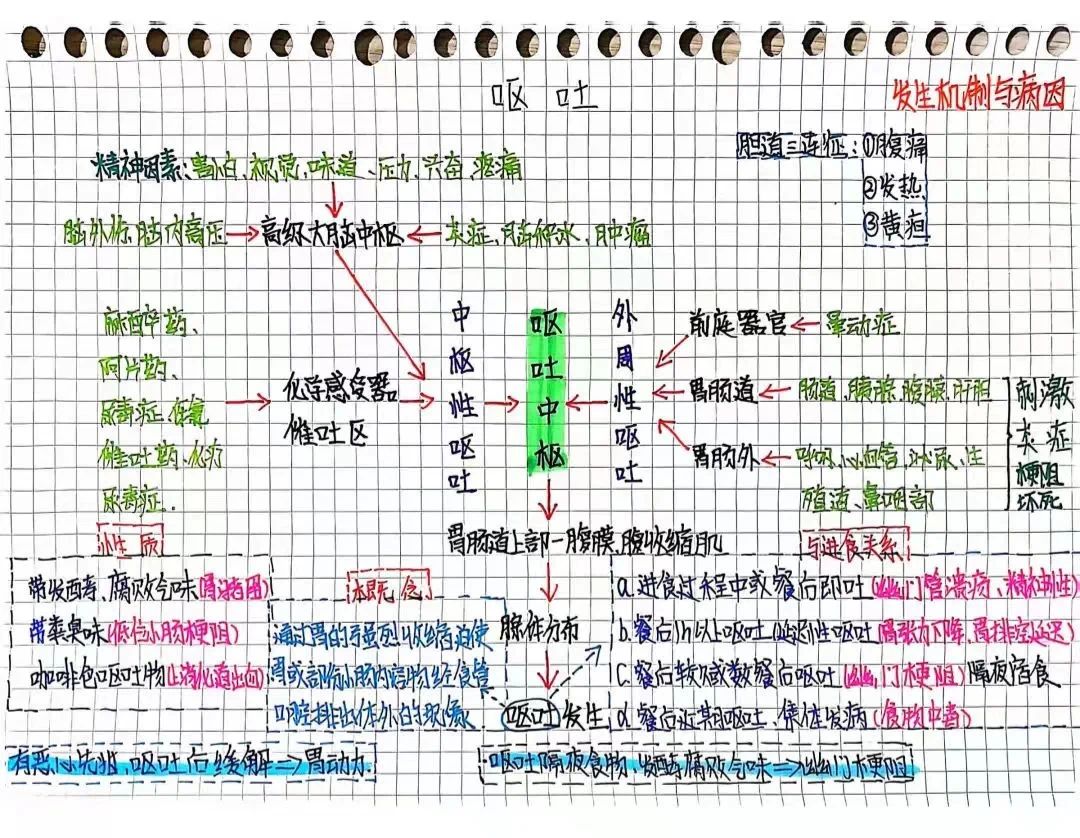 呕吐
发生机制与病因
精神因素:害怕、视觉、味道、压力、兴奋、疼痛
胆道三连症:①腹痛
②发热
③黄疸
脑外伤、脑内高压
高级大脑中枢
炎症、脑积水、肿瘤
麻醉药、
阿片药、
尿毒症、低氧
催吐药、化疗
尿毒症.
化学感受器
催吐区
中枢性呕吐
呕吐中枢
外周性呕吐
前庭器官
晕动症
胃肠道
肠道、胰腺、腹膜、肝胆
胃肠外
呼吸、心血管、泌尿、生
殖道、鼻咽部
刺激
炎症
梗阻
坏死
胃肠道上部—腹膜、腹收缩肌
腺体分布
呕吐发生
性质
带发酵、腐败气味(胃潴留)
带粪臭味(低位小肠梗阻)
咖啡色呕吐物(上消化道出血)
概念
通过胃的强烈收缩迫使
胃或部份小肠内容物经食管
口腔排出体外的现象
与进食关系
a.进食过程中或餐后即吐(幽门管溃疡、精神性)
b.餐后1h以上呕吐(延迟性呕吐 胃张力下降,胃排空延迟)
C.餐后较久或数餐后呕吐(幽门梗阻)隔夜宿食
d.餐后近期呕吐、集体发病(食物中毒)
有恶心先兆,呕吐后缓解⇒胃动力
呕吐隔夜食物,发酵腐败气味⇒幽门梗阻